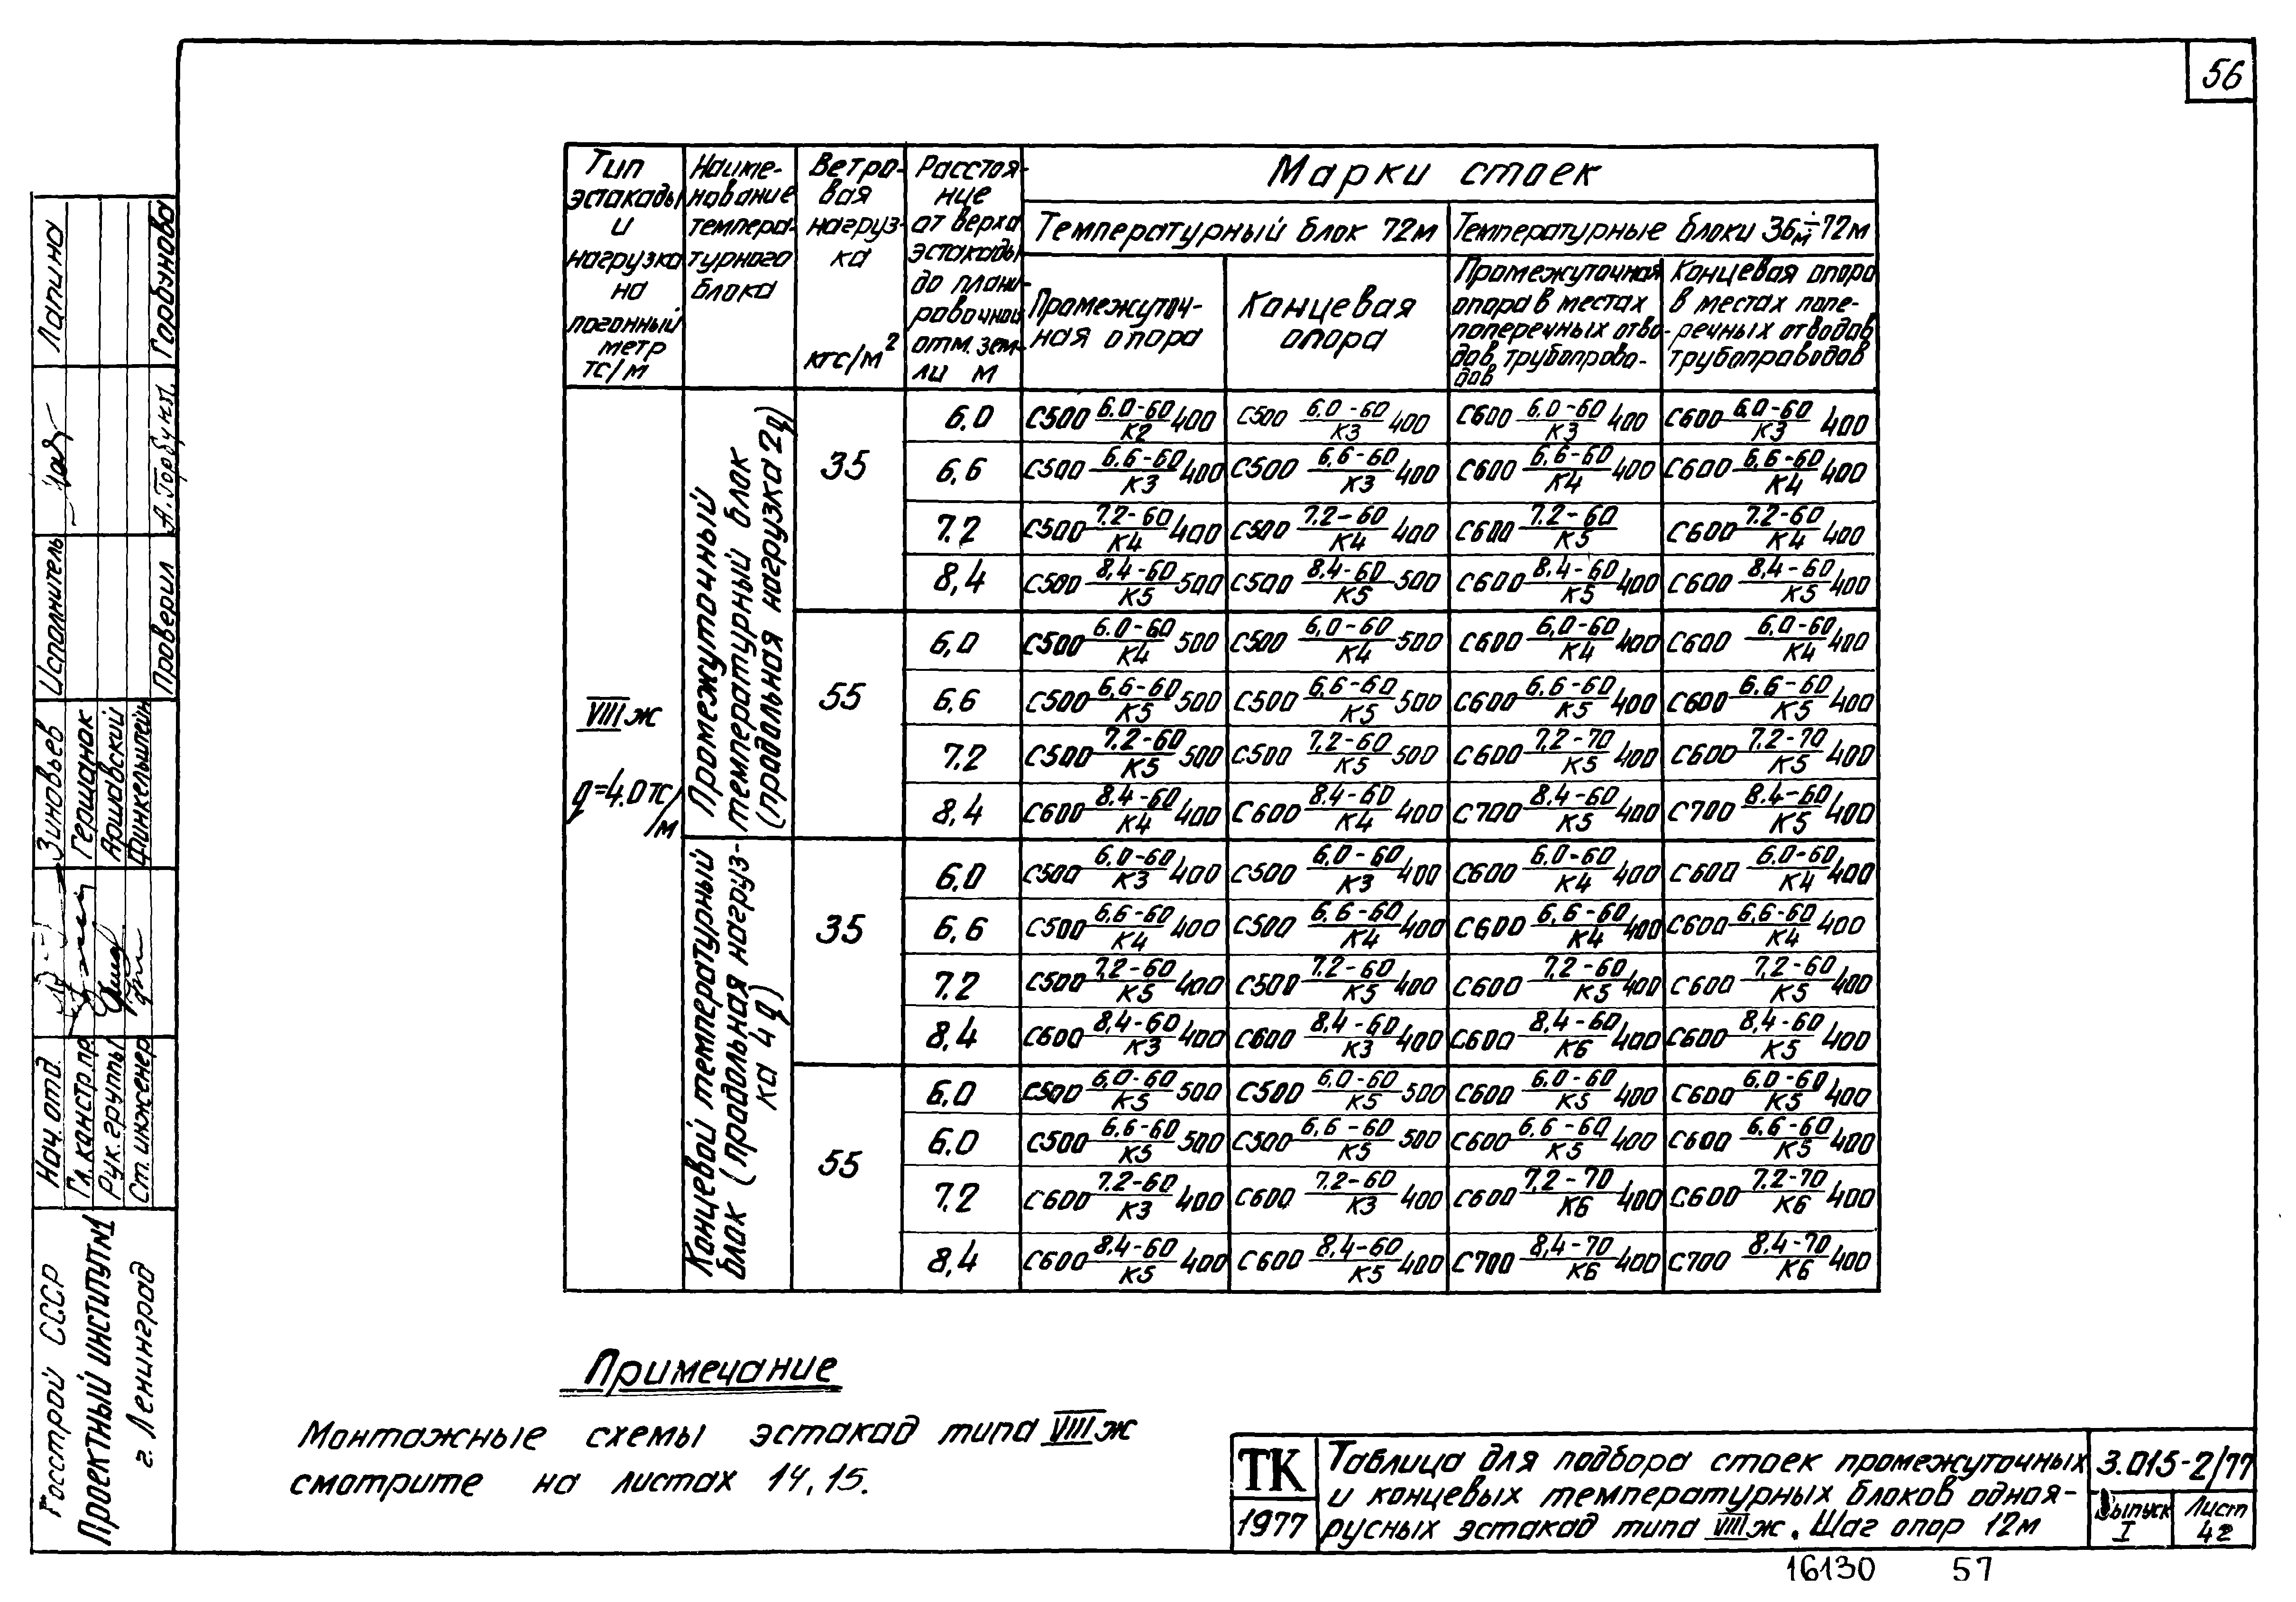 56
Тип эстакады и нагрузка на погонный метр тс/м
Наиме-нование темпера-турного блока
Ветро-вая нагруз-ка кгс/м²
Расстоя-ние от верха эстакады до плани-ровочной отм. зем-ли м
Марки стоек
Температурный блок 72м
Температурные блоки 36м÷72м
Промежуточ-ная опора
Концевая опора
Промежуточная опора в местах поперечных отво-дов трубопрово-дов
Концевая опора в местах попе-речных отводов трубопроводов
VIIIж
q=4.0тс/м
Промежуточный температурный блок (продольная нагрузка 2q)
35
6,0 С500 6,0-60/К2 400 С500 6,0-60/К3 400 С600 6,0-60/К3 400 С600 6,0-60/К3 400
6,6 С500 6,6-60/К3 400 С500 6,6-60/К3 400 С600 6,6-60/К4 400 С600 6,6-60/К4 400
7.2 С500 7.2-60/К4 400 С500 7.2-60/К4 400 С600 7.2-60/К5 С600 7.2-60/К4 400
8,4 С500 8,4-60/К5 500 С500 8,4-60/К5 500 С600 8.4-60/К5 400 С600 8,4-60/К5 400
55
6,0 С500 6.0-60/К4 500 С500 6,0-60/К4 500 С600 6,0-60/К4 400 С600 6,0-60/К4 400
6,6 С500 6,6-60/К5 500 С500 6,6-60/К5 500 С600 6,6-60/К5 400 С600 6.6-60/К5 400
7.2 С500 7.2-60/К5 500 С500 7,2-60/К5 500 С600 7,2-70/К5 400 С600 7.2-70/К5 400
8,4 С600 8.4-60/К4 400 С600 8.4-60/К4 400 С700 8.4-60/К5 400 С700 8.4-60/К5 400
Концевой температурный блок (продольная нагруз-ка 4q)
35
6,0 С500 6,0-60/К3 400 С500 6,0-60/К3 400 С600 6,0-60/К4 400 С600 6,0-60/К4 400
6,6 С500 6,6-60/К4 400 С500 6,6-60/К4 400 С600 6,6-60/К4 400 С600 6,6-60/К4 400
7.2 С500 7,2-60/К5 400 С500 7,2-60/К5 400 С600 7,2-60/К5 400 С600 7,2-60/К5 400
8,4 С600 8,4-60/К3 400 С600 8,4-60/К3 400 С600 8,4-60/К6 400 С600 8,4-60/К5 400
55
6,0 С500 6,0-60/К5 500 С500 6,0-60/К5 500 С600 6,0-60/К5 400 С600 6,0-60/К5 400
6,0 С500 6,6-60/К5 500 С500 6,6-60/К5 500 С600 6,6-60/К5 400 С600 6.6-60/К5 400
7.2 С600 7.2-60/К3 400 С600 7.2-60/К3 400 С600 7,2-70/К6 400 С600 7.2-70/К6 400
8,4 С600 8.4-60/К5 400 С600 8,4-60/К5 400 С700 8,4-70/К6 400 С700 8.4-70/К6 400
Примечание
Монтажные схемы эстакад типа VIIIж
смотрите на листах 14,15.
ТК
1977
Таблица для подбора стоек промежуточных
и концевых температурных блоков одноя-
русных эстакад типа VIIIж. Шаг опор 12м
3.015-2/77
Выпуск I
Лист 42
16130 57
Госстрой СССР
Проектный институт №1
г. Ленинград
Нач. отд. Зиновьев
Гл. констр. пр. Герщанок
Рук. группы Аршавский
Ст. инженер Финкельштейн
Исполнитель Лапина
Проверил А. Горбун. Горбунова